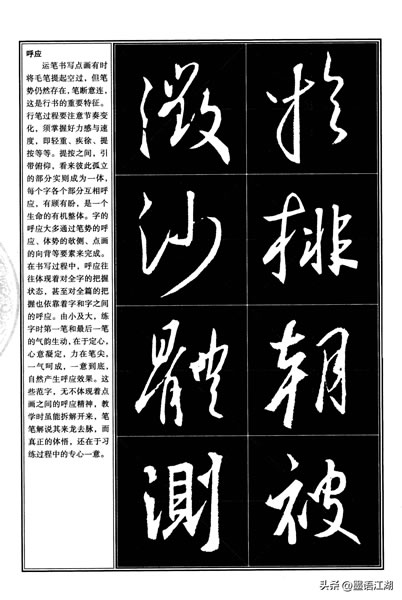 呼应
运笔书写点画有时
将毛笔提起空过，但笔
势仍然存在，笔断意连，
这是行书的重要特征。
行笔过程要注意节奏变
化，须掌握好力感与速
度，即轻重、疾徐、提
按等等。提按之间，引
带俯仰，看来彼此孤立
的部分实则成为一体，
每个字各个部分互相呼
应，有顾有盼，是一个
生命的有机整体。字的
呼应大多通过笔势的呼
应、体势的欹侧、点画
的向背等要素来完成。
在书写过程中，呼应往
往体现着对全字的把握
状态，甚至对全篇的把
握也依靠着字和字之间
的呼应。由小及大，练
字时第一笔和最后一笔
的气韵生动，在于定心，
心意凝定，力在笔尖，
一气呵成，一意到底，
自然产生呼应效果。这
些范字，无不体现着点
画之间的呼应精神，教
学时虽能拆解开来，笔
笔解说其来龙去脉，而
真正的体悟，还在于习
练过程中的专心一意。
於
排
朝
被
沙
體
測
头条@墨语江湖